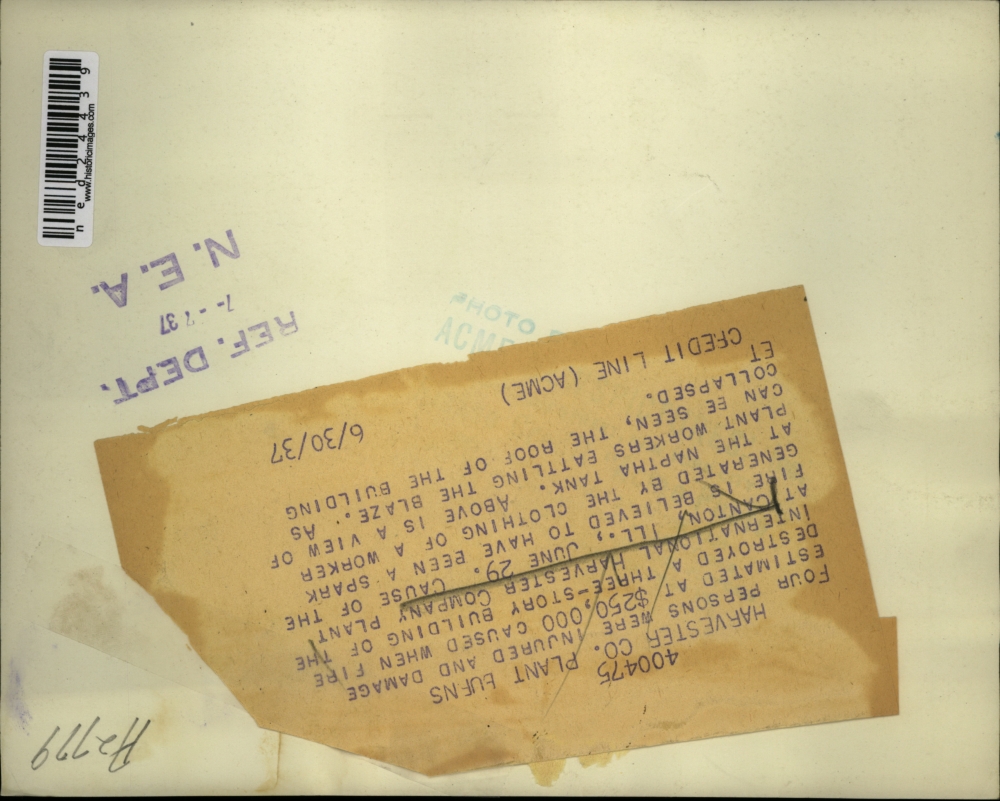 400475
HARVESTER CO. PLANT BURNS
FOUR PERSONS WERE INJURED AND DAMAGE
ESTIMATED AT $250,000 CAUSED WHEN FIRE
DESTROYED A THREE-STORY BUILDING OF THE
INTERNATIONAL HARVESTER COMPANY PLANT
AT CANTON, ILL., JUNE 29. CAUSE OF THE
FIRE IS BELIEVED TO HAVE BEEN A SPARK
GENERATED BY THE CLOTHING OF A WORKER
AT THE NAPTHA TANK. ABOVE IS A VIEW OF
PLANT WORKERS BATTLING THE BLAZE. AS
CAN BE SEEN, THE ROOF OF THE BUILDING
COLLAPSED.
ET
CREDIT LINE (ACME) 6/30/37
REF. DEPT.
7-7 37
N. E. A.
ACME
PHOTO
ned24439
www.historicimages.com